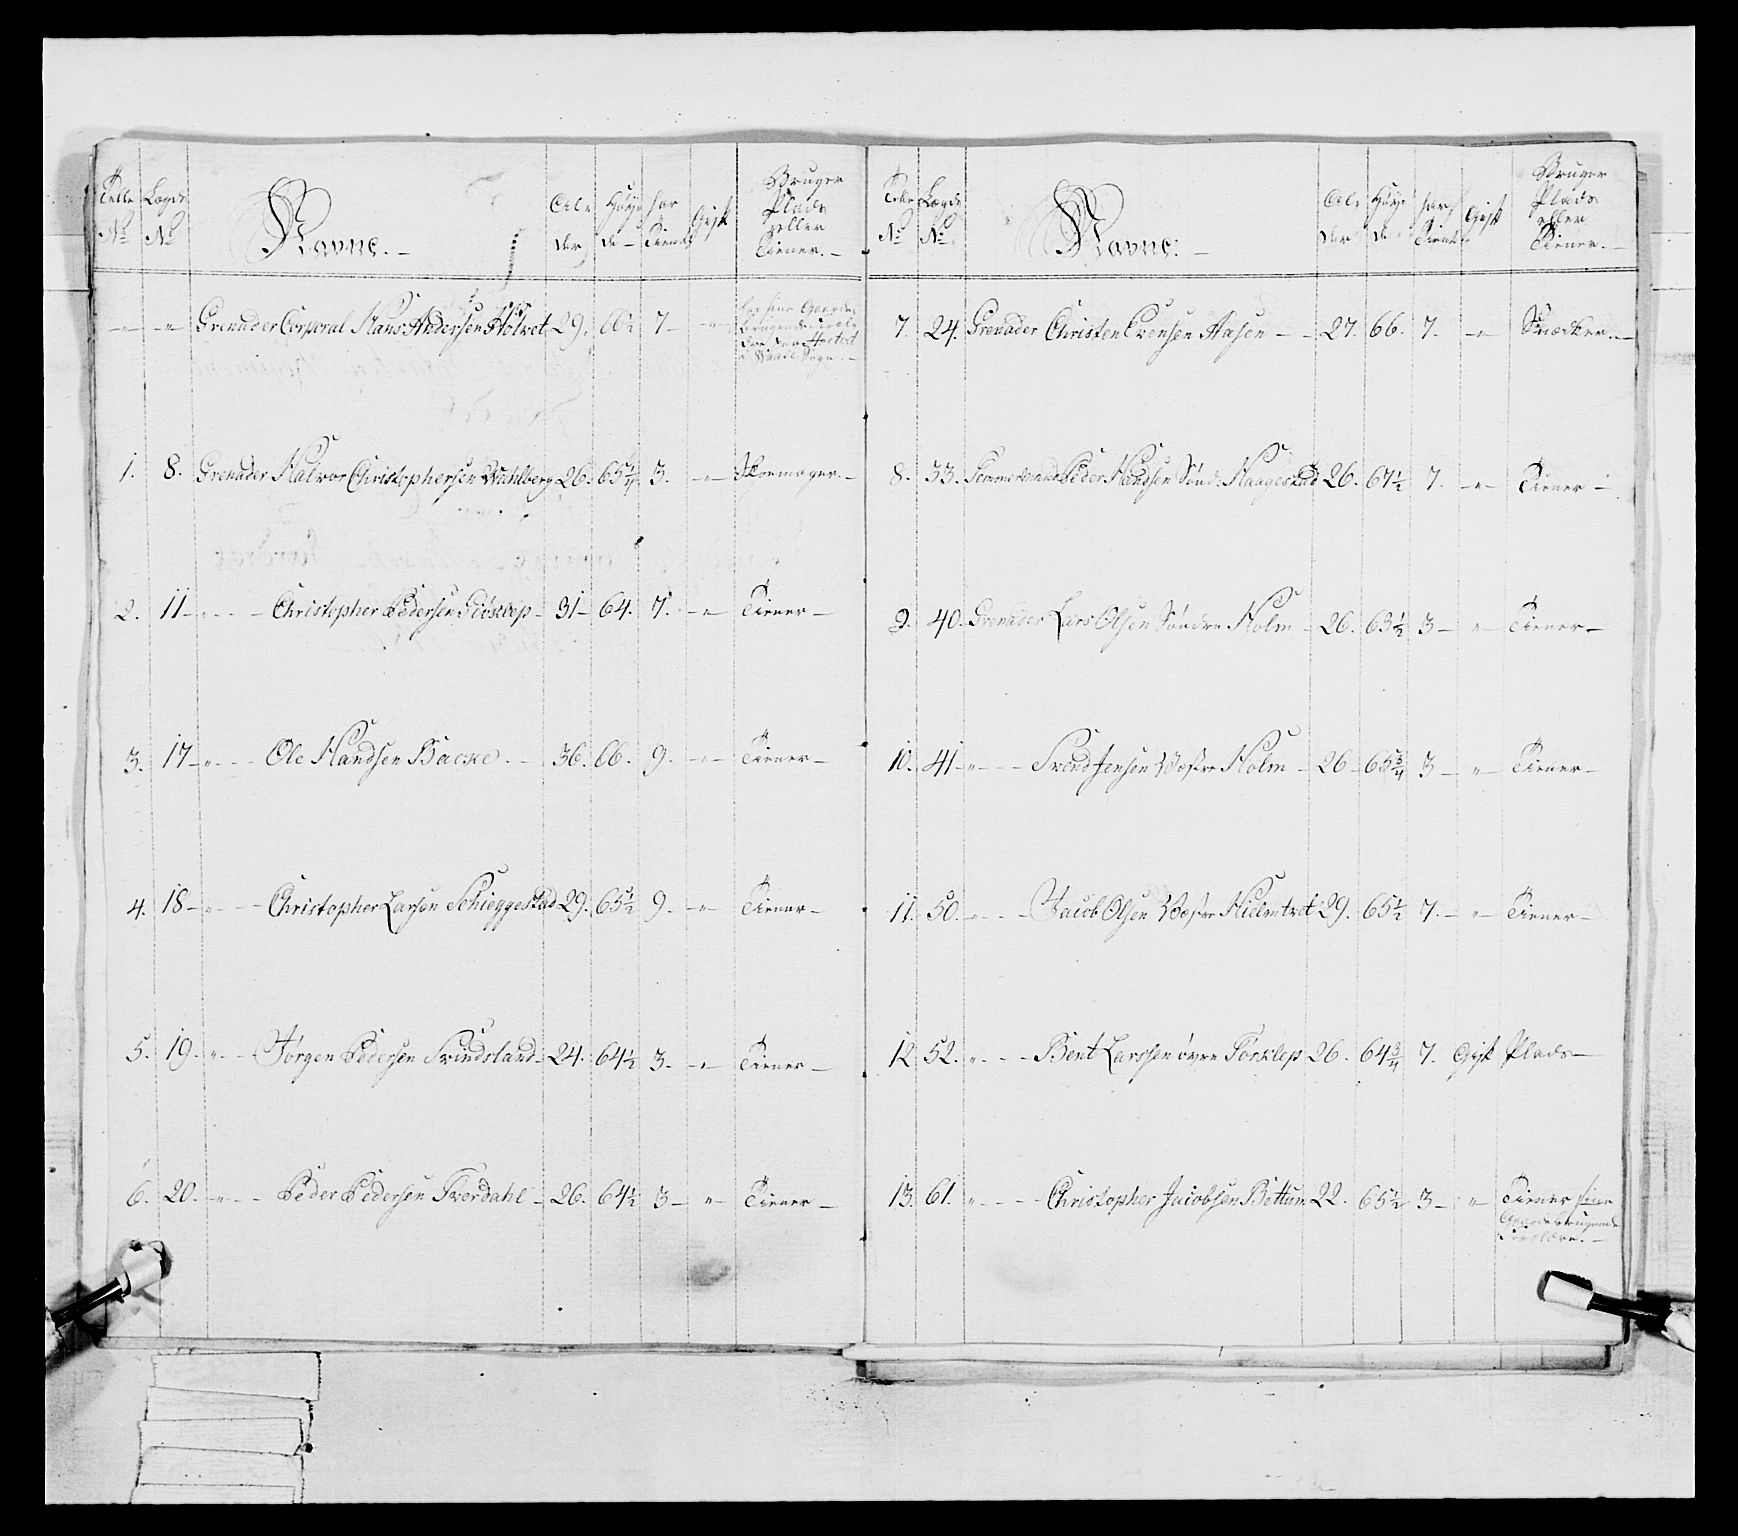 Telle Lægds Navne. Al- Høy- har Gift Bruger
No No der de Tient Plads
eller
Tiener.
" " Grenader Corporal Hans Andersen Holvet 29. 66 7 "
1. 8. Grenader Halvor Christophersen Wahlberg 26. 65 1/4 3. " Skoemager.
2. 11 " Christopher Pedersen 31 64. 7. " Tiener
3. 17 " Ole Handsen Backe. 36. 66. 9. " Tiener
4. 18 " Christopher Larsen Schieggestad 29. 65 1/2 9. " Tiener
5. 19. " Jørgen Pedersen Svindsland 24. 64 1/2 3. " Tiener
6. 20. " Peder Pedersen Tverdahl 26. 64 1/2 3 " Tiener
Telle Lægds Navne. Al- Høy- har Gift Bruger
No No der de Tient Plads
eller
Tiener.
7. 24. Grenader Christen Evensen Aasen 27. 66. 7. " Snedker.
8. 33. Tømmermand Peder Handsen Sønd: Haagestad 26. 67 1/2 7. " Tiener
9. 40. Grenader Lars Olsen Søndre Holm 26. 63 1/2 3 " Tiener
10. 41 " Svend Jensen Væstre Holm 26 65 3/4 3 " Tiener
11. 50. " Jacob Olsen Væstre Hielmtvet 29. 65 1/2 7. " Tiener
12 52. " Bent Larssen øvre Torklep 26. 64 3/4 7. Gift Plads
13. 61. " Christopher Jacobsen Bettum 22. 65 1/2 3 " Tiener sine
Gaardebrugende
Forældre.